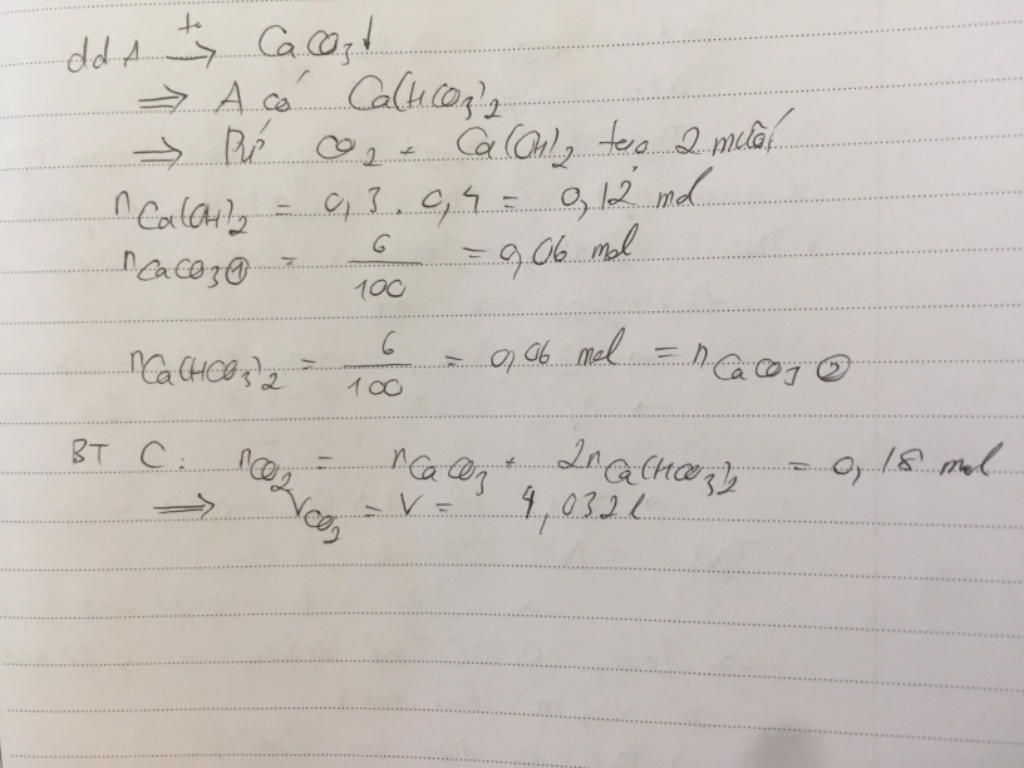 dd A →(t°) CaCO3↓
⇒ A có Ca(HCO3)2
⇒ Pứ CO2 + Ca(OH)2 tạo 2 muối
nCa(OH)2 = 0,3 . 0,4 = 0,12 mol
nCaCO3① = 6/100 = 0,06 mol
nCa(HCO3)2 = 6/100 = 0,06 mol = nCaCO3②
BT C: nCO2 = nCaCO3 + 2nCa(HCO3)2 = 0,18 mol
⇒ VCO2 = V = 4,032l